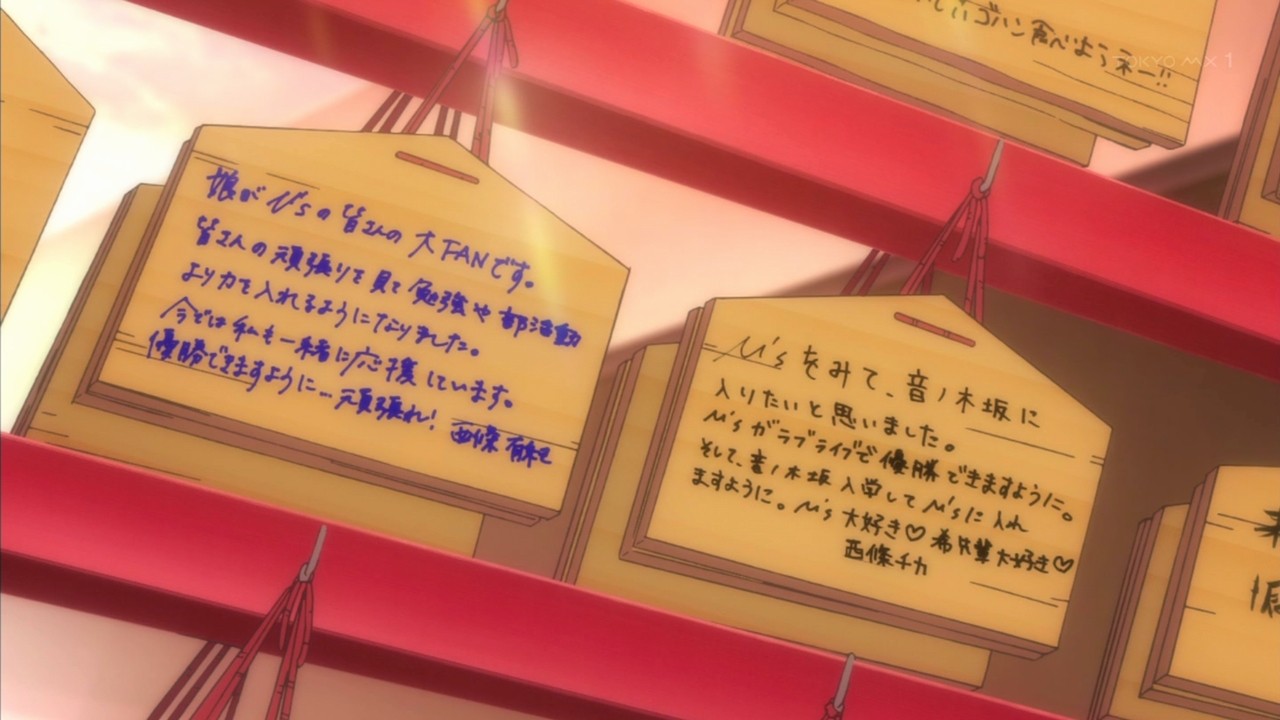 ゴハン食べようネー!!
TOKYO MX1
娘がμ'sの皆さんの大FANです。
皆さんの頑張りを見て勉強や部活動
より力を入れるようになりました。
今では私も一緒に応援しています。
優勝できますように…頑張れ!西條有紀
μ'sをみて、音ノ木坂に
入りたいと思いました。
μ'sがラブライブで優勝できますように。
そして、音ノ木坂入学してμ'sに入れ
ますように。μ's大好き♡希先輩大好き♡
西條チカ